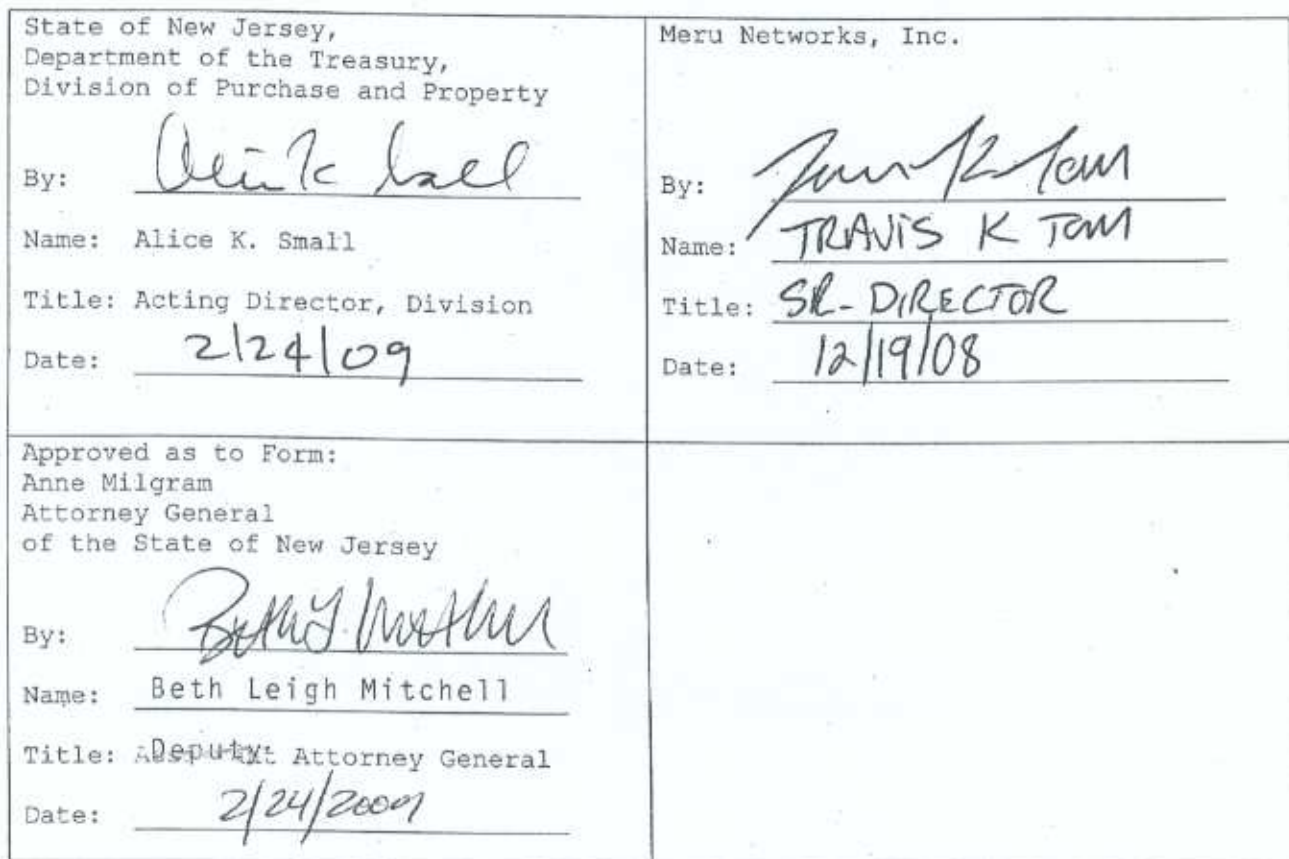 State of New Jersey,
Department of the Treasury,
Division of Purchase and Property
By:
Name: Alice K. Small
Title: Acting Director, Division
Date: 2/24/09
Meru Networks, Inc.
By:
Name: TRAVIS K TOM
Title: SR. DIRECTOR
Date: 12/19/08
Approved as to Form:
Anne Milgram
Attorney General
of the State of New Jersey
By:
Name: Beth Leigh Mitchell
Title: Deputy Attorney General
Date: 2/24/2009